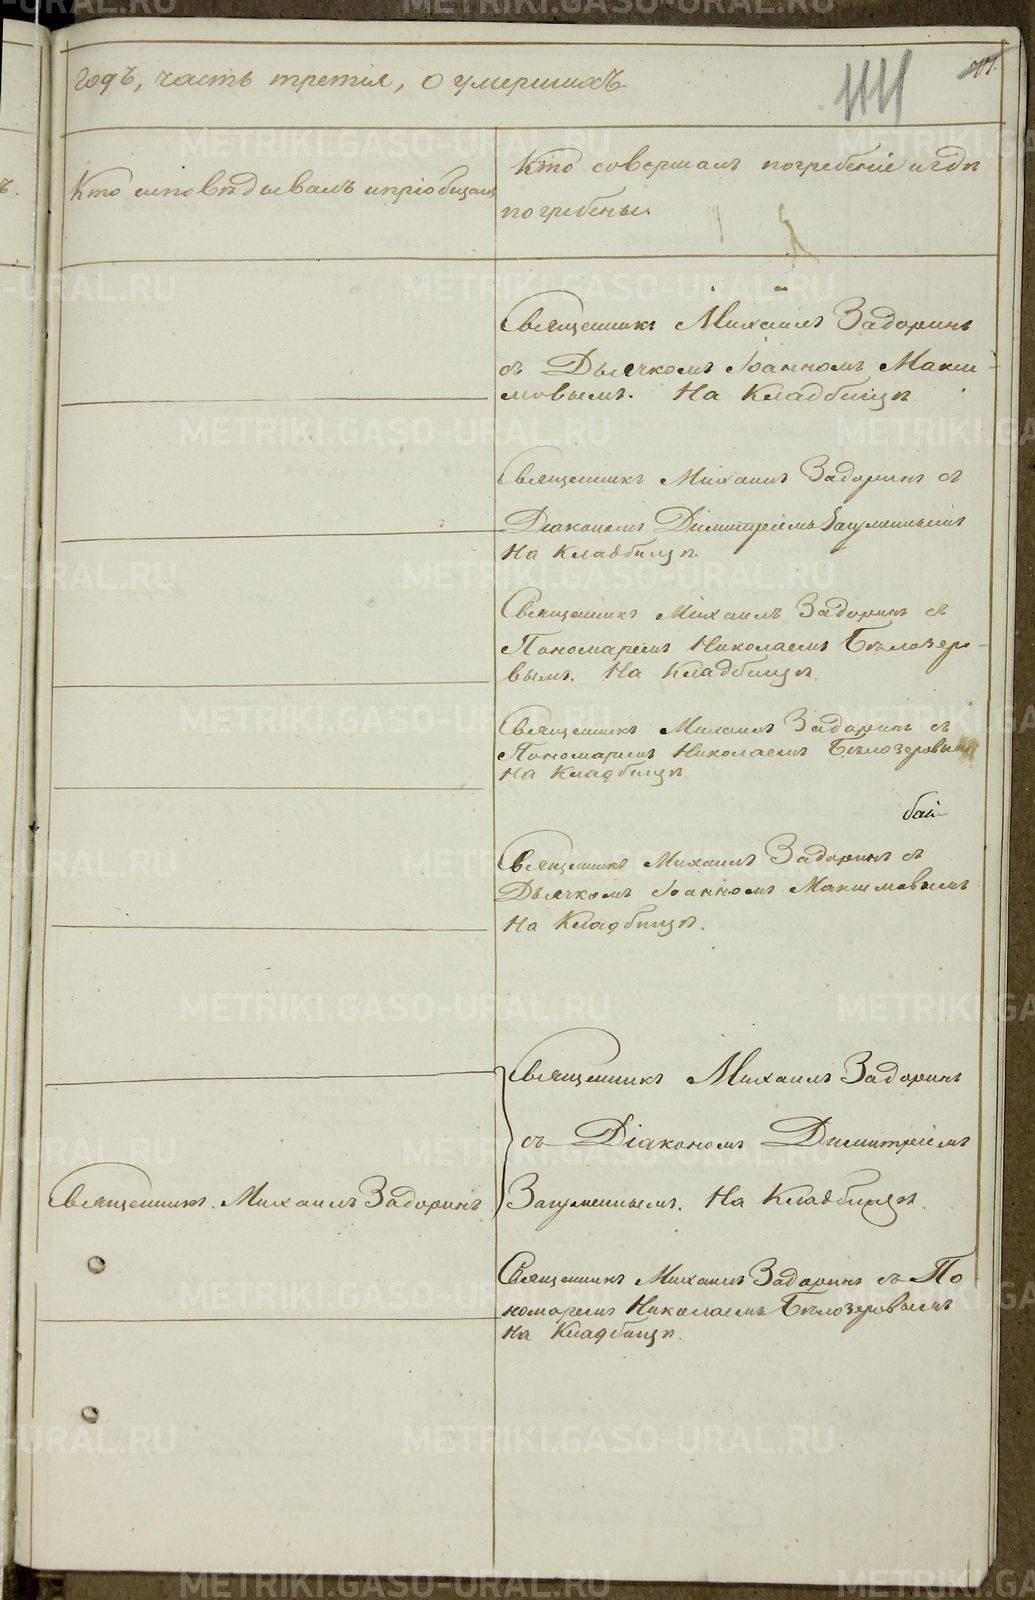 годъ, часть третія, о умершихъ
111
Кто исповѣдывалъ и пріобщалъ
Кто совершалъ погребеніе и гдѣ
погребены.
Священникъ Михаилъ Задоринъ
съ Дьячкомъ Іоанномъ Макси-
мовымъ. На Кладбищѣ
Священникъ Михаилъ Задоринъ съ
Діакономъ Димитріемъ Загуменнымъ
На Кладбищѣ
Священникъ Михаилъ Задоринъ съ
Пономаремъ Николаемъ Бѣлозеро-
вымъ. На Кладбищѣ.
Священникъ Михаилъ Задоринъ съ
Пономаремъ Николаемъ Бѣлозеровымъ
На Кладбищѣ
бай-
Священникъ Михаилъ Задоринъ съ
Дьячкомъ Іоанномъ Максимовымъ
На Кладбищѣ.
Священникъ Михаилъ Задоринъ
съ Діакономъ Димитріемъ
Священникъ Михаилъ Задоринъ
Загуменнымъ. На Кладбищѣ.
Священникъ Михаилъ Задоринъ съ По
номаремъ Николаемъ Бѣлозеровымъ
На Кладбищѣ.
METRIKI.GASO-URAL.RU